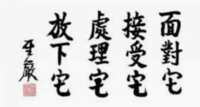 面對它
接受它
處理它
放下它
聖嚴